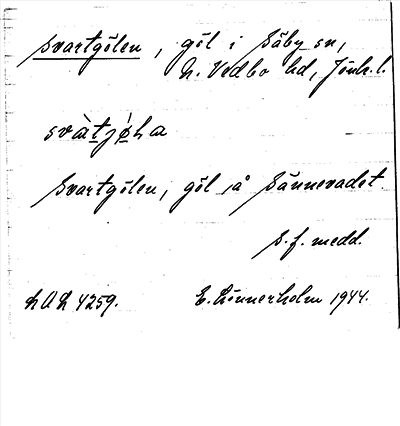 Svartgölen, göl i Säby sn,
N. Vedbo hd, Jönk. l.
svàtjø̀ɫa
Svartgölen, göl på Sännevadet.
S. f. medd.
LAL 4259.
E. Lönnerholm 1944.